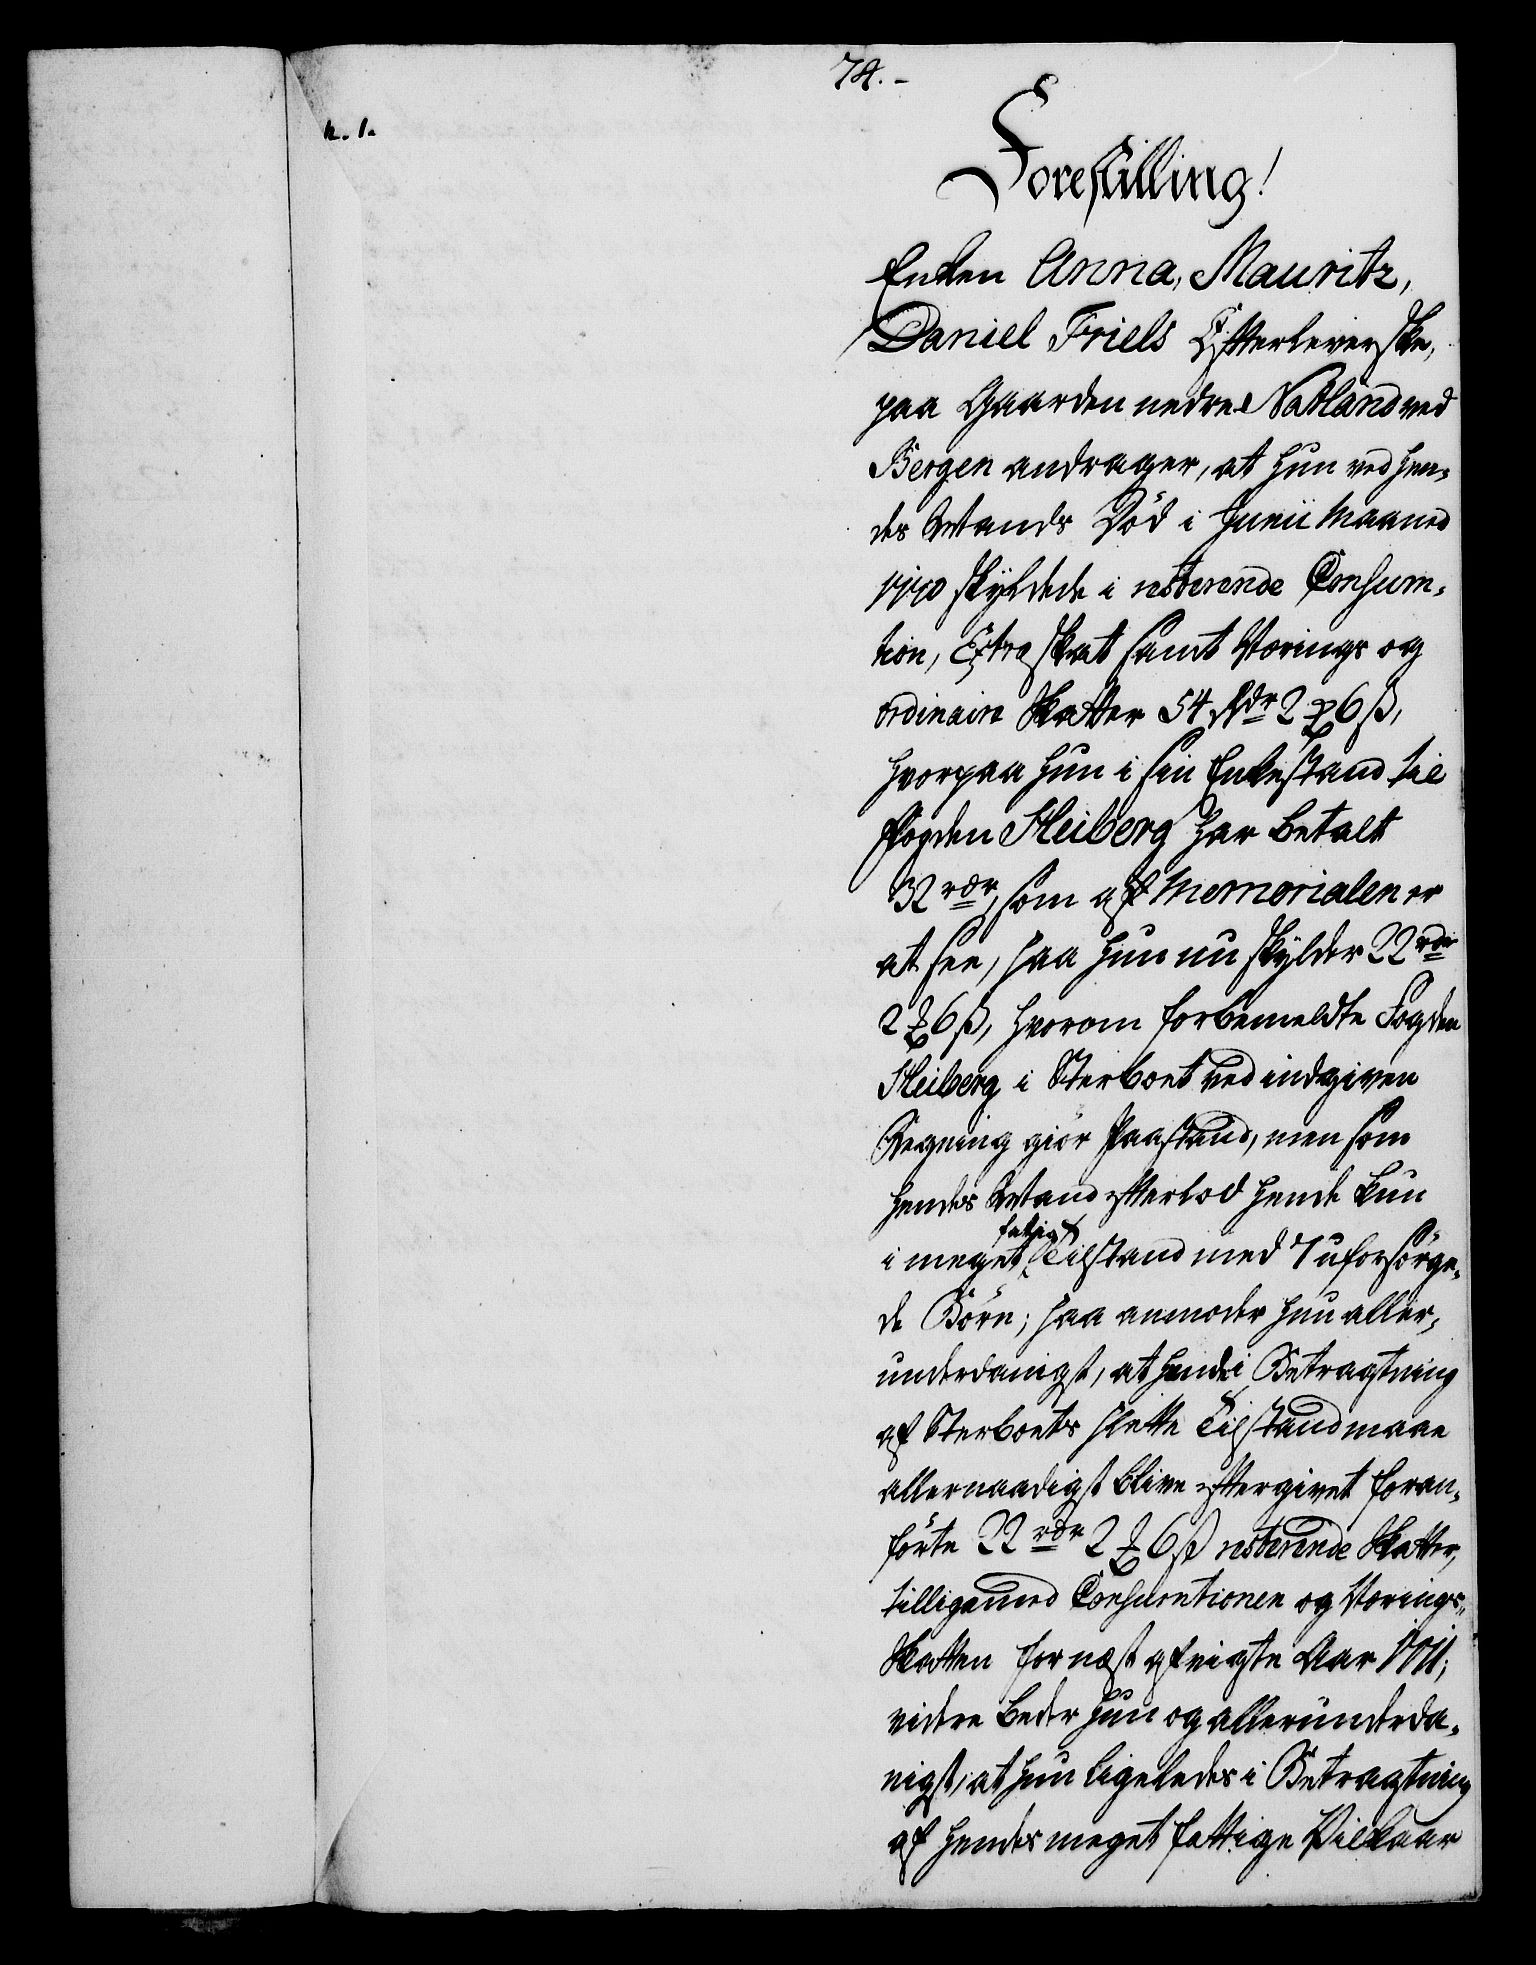 74.-
n. 1.
Forestilling!
Enken Anna, Mauritz,
Daniel Friels Efterleverske,
paa Gaarden nedre Natland ved
Bergen andrager, at hun ved hen,
des Mands Död i Junii Maaned
1770 skyldede i resterende Consum,
tion, Extra skat samt Norings og
ordinaire Skatter 54 Rdr 2 ℔ 6 ß,
hvorpaa hun i sin Enkestand til
Fogden Heiberg har betalt
32 rdr, som af Memorialen er
at see, saa hun nu skylder 22 rdr
2 ℔ 6 ß, hvorom forbemeldte Fogden
Heiberg i Sterboet ved indgiven
Regning giör Paastand, men som
hendes Mand efterlod hende kun
i meget fattig Tilstand med 7 uforsörge,
de Börn; saa anmoder hun aller,
underdanigst, at hende i Betragtning
af Sterboets slette Tilstand maae
allernaadigst blive eftergivet foran,
förte 22 rdr 2 ℔ 6 ß resterende Skatter,
tilligemed Consumtionen og Norings,
Skatten for næst afvigte Aar 1771;
videre beder hun og allerunderda,
nigst, at hun ligeledes i Betragtning
af hendes meget fattige Vilkaar